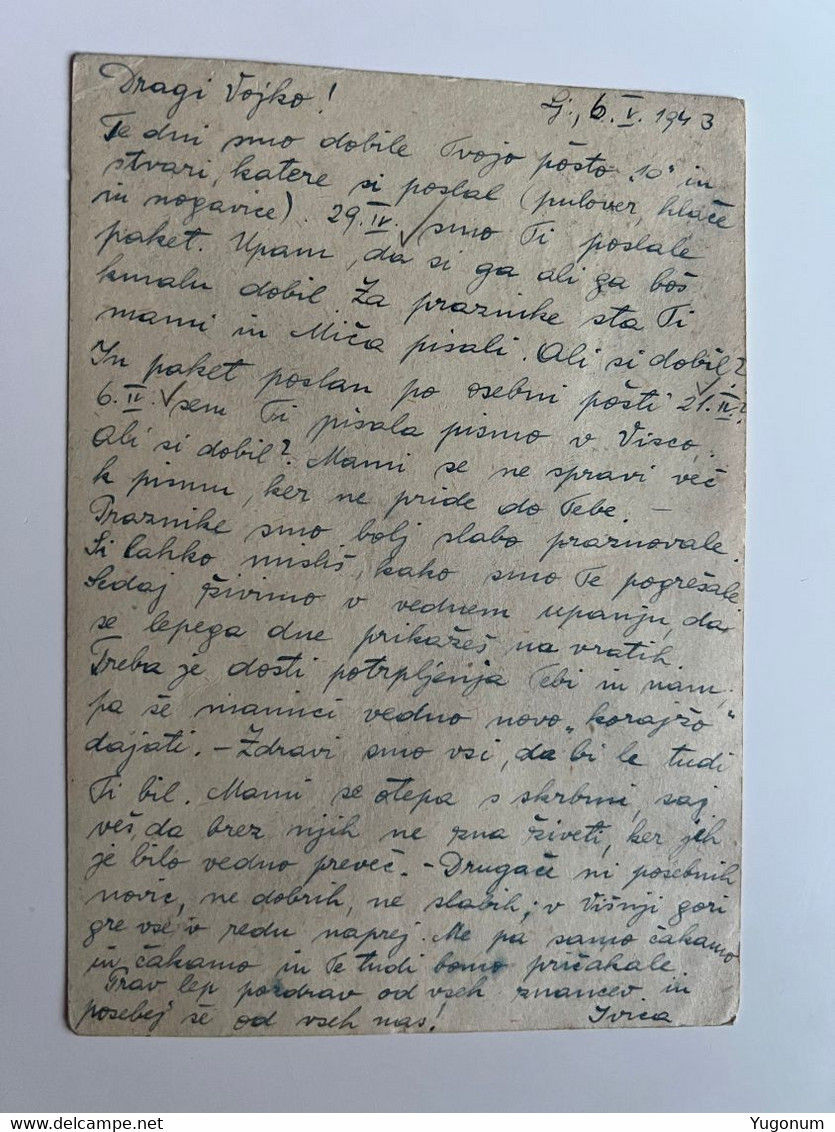 Dragi Vojko!
Lj., 6. V. 1943
Te dni smo dobile Tvojo pošto „10" in
stvari, katere si poslal (pulover, hlače
in nogavice). 29. IV. smo Ti poslale
paket. Upam, da si ga ali ga boš
kmalu dobil. Za praznike sta Ti
mami in Miča pisali. Ali si dobil?
In paket poslan po osebni pošti 21. IV.?
6. IV. sem Ti pisala pismo v Visco.
Ali si dobil? Mami se ne spravi več
k pismu, ker ne pride do Tebe. –
Praznike smo bolj slabo praznovale.
Si lahko misliš, kako smo Te pogrešale.
Sedaj živimo v vednem upanju, da
se lepega dne prikažeš na vratih.
Treba je dosti potrpljenja Tebi in nam,
pa še mamici vedno novo „korajžo"
dajati. – Zdravi smo vsi, da bi le tudi
Ti bil. Mami se otepa s skrbmi, saj
veš, da brez njih ne zna živeti, ker jih
je bilo vedno preveč. – Drugače ni posebnih
novic, ne dobrih, ne slabih; v Višnji gori
gre vse v redu naprej. Me pa samo čakamo
in čakamo in Te tudi bomo pričakale.
Prav lep pozdrav od vseh znancev in
posebej še od vseh nas! Ivica
Yugonum